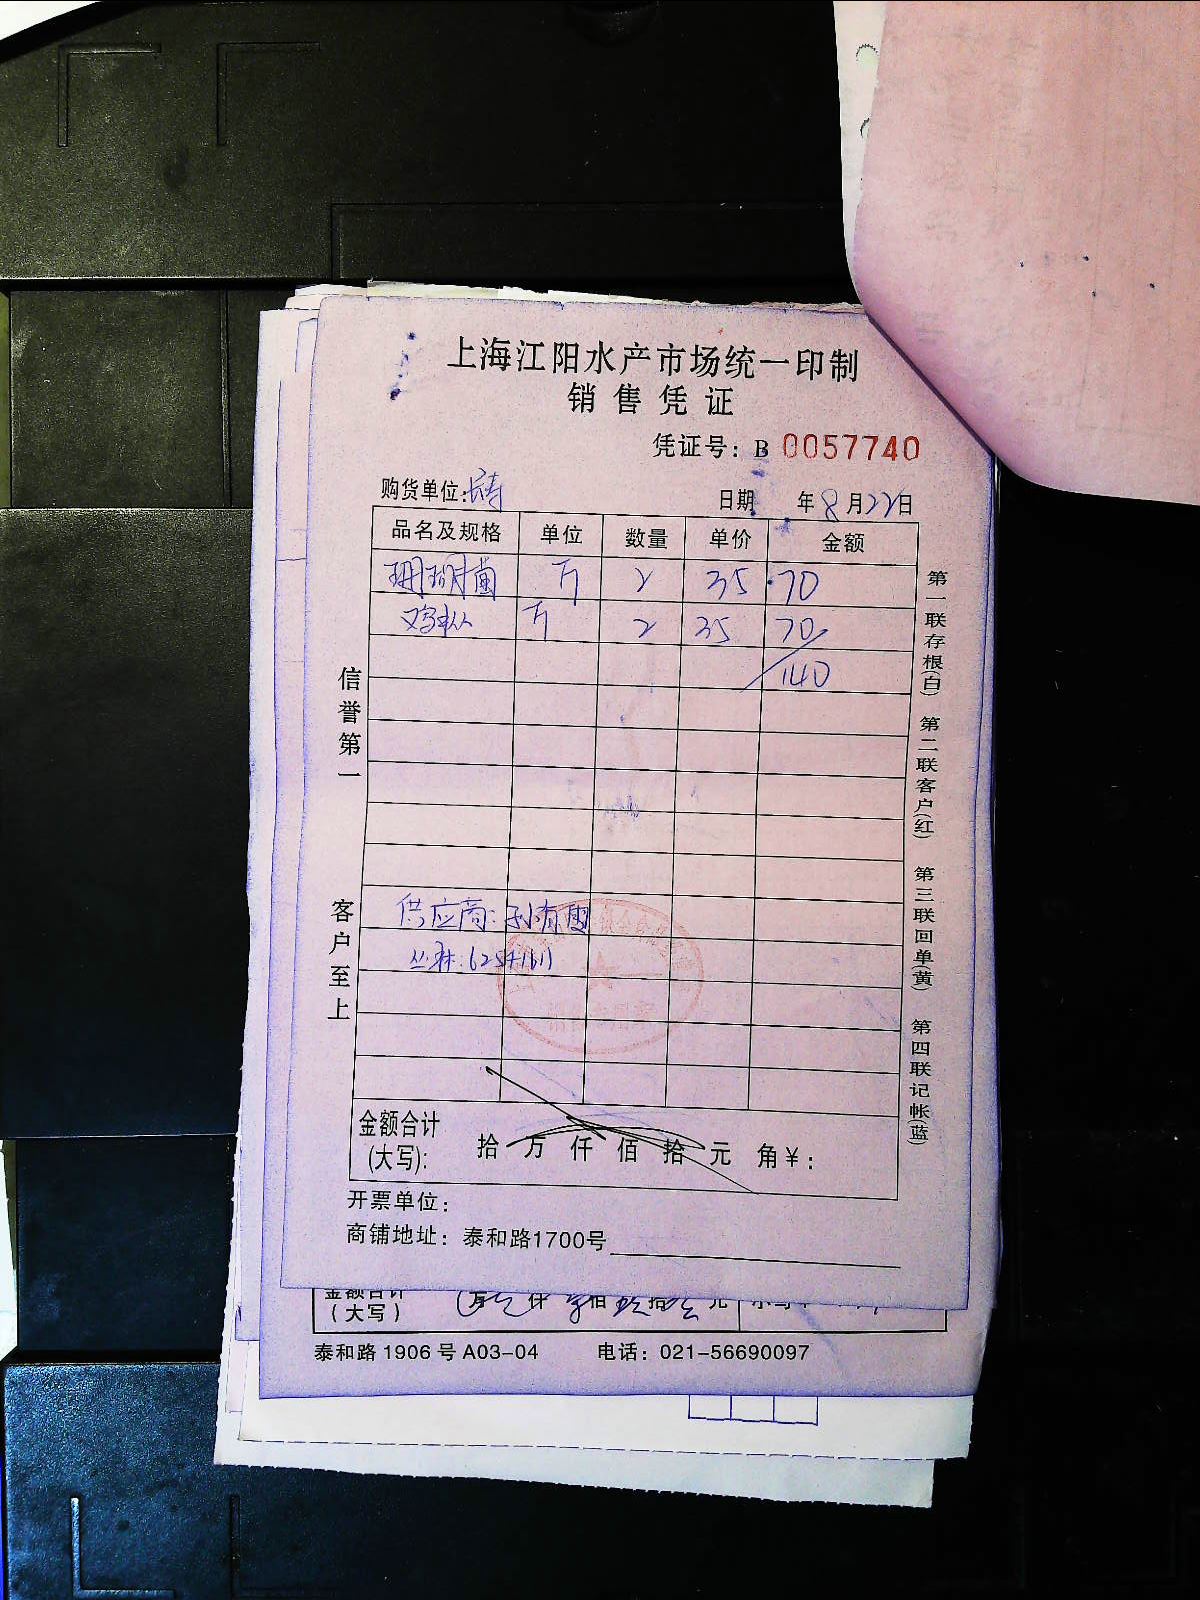 上海江阳水产市场统一印制
销售凭证
凭证号: B 0057740
购货单位:
日期 年8月22日
品名及规格 单位 数量 单价 金额
珊瑚菌 斤 2 35 70
鸡枞 斤 2 35 70
140
供应商:
丛林:62541611
金额合计
(大写): 拾 万 仟 佰 拾 元 角¥:
开票单位:
商铺地址: 泰和路1700号
信誉第一
客户至上
第一联存根(白) 第二联客户(红) 第三联回单(黄) 第四联记帐(蓝)
金额合计
(大写) 万 仟 佰 拾 元
泰和路 1906 号 A03-04 电话: 021-56690097